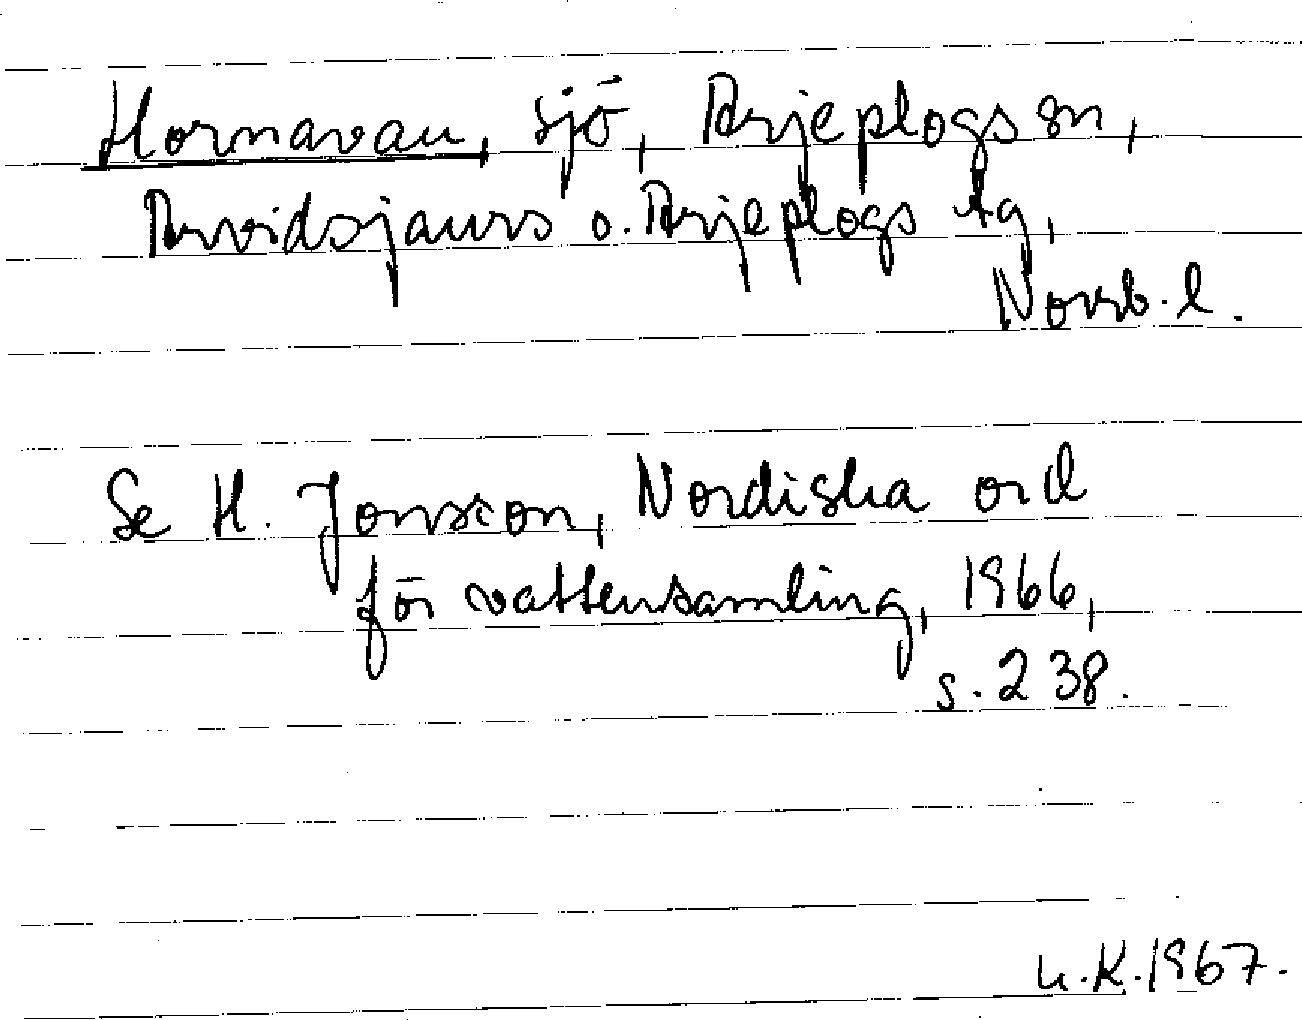 Hornavan, sjö, Arjeplogs sn,
Arvidsjaurs o. Arjeplogs tg,
Norrb. l.
Se H. Jonsson, Nordiska ord
för vattensamling, 1966,
s. 238.
u.K. 1967.